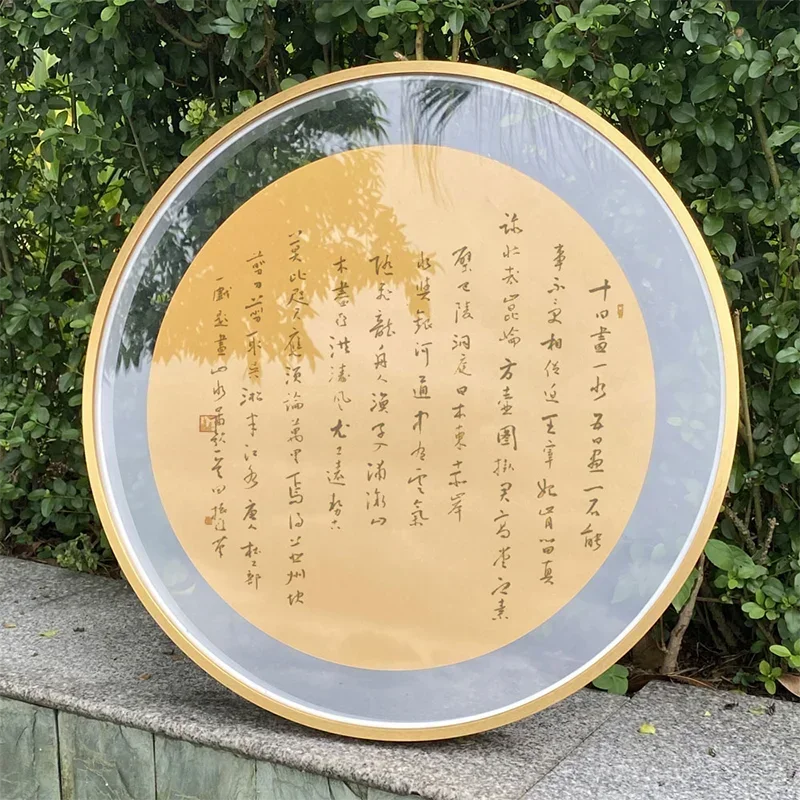 十日畫一水五日畫一石能
事不受相促迫王宰始肯留真
跡壯哉崑崙方壺圖掛君高堂之素
壁巴陵洞庭日本東赤岸
水與銀河通中有雲氣
隨飛龍舟人漁子入浦溆山
木盡亞洪濤風尤工遠勢古
莫比咫尺應須論萬里焉得并州快
剪刀剪取吳淞半江水唐杜工部
戲題畫山水圖歌一首